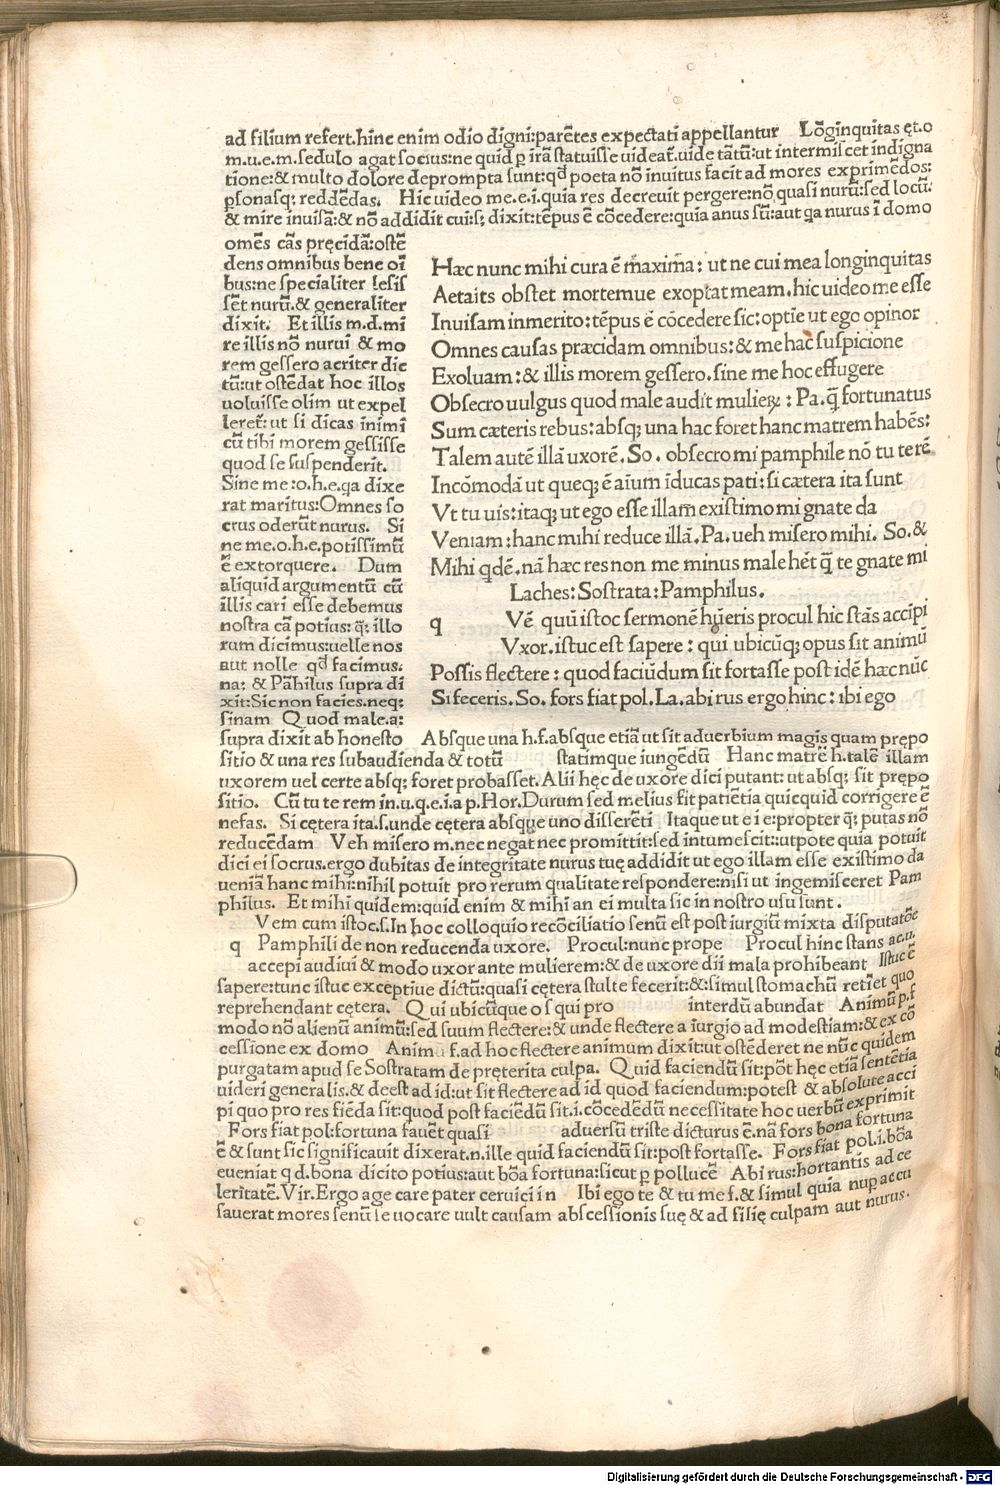 ad filium refert.hinc enim odio digni:parẽtes expectati appellantur Lõginquitas ęt.o
m.u.e.m.sedulo agat socius:ne quid p irã statuisse uideat̃.uide tãtũ:ut intermiscet indigna
tione:& multo dolore deprompta sunt:qd̃ poeta nõ inuitus facit ad mores exprimẽdos:
psonasq; reddẽdas. Hic uideo me.e.i.quia res decreuit pergere:nõ quasi nurũ:sed locũ.
& mire inuisã:& nõ addidit cui:s; dixit:tẽpus ẽ cõcedere:quia anus sũ:aut qa nurus ĩ domo
omẽs cãs pręcidã:ostẽ
dens omnibus bene oĩ
bus:ne specialiter lesis
sẽt nurũ.& generaliter
dixit. Et illis m.d.mi
re illis nõ nurui & mo
rem gessero acriter dic
tũ:ut ostẽdat hoc illos
uoluisse olim ut expel
leret̃: ut si dicas inimi
cũ tibi morem gessisse
quod se suspenderit.
Sine me:o.h.e.qa dixe
rat maritus:Omnes so
crus oderũt nurus. Si
ne me.o.h.e.potissimũ
ẽ extorquere. Dum
aliquid argumentũ cũ
illis cari esse debemus
nostra cã potius: q̃; illo
rum dicimus:uelle nos
aut nolle qd̃ facimus.
na; & Pãhilus supra di
xit:Sic non facies.neq;
sinam Quod male.a:
supra dixit ab honesto
Hæc nunc mihi cura ẽ m̃axim̃a: ut ne cui mea longinquitas
Aetaits obstet mortemue exoptat meam.hic uideo me esse
Inuisam inmerito:tẽpus ẽ cõcedere sic:optie ut ego opinor
Omnes causas præcidam omnibus:& me hac suspicione
Exoluam:& illis morem gessero.sine me hoc effugere
Obsecro uulgus quod male audit mulieꝝ : Pa.q̃ fortunatus
Sum cæteris rebus:absq; una hac foret hanc matrem habẽs:
Talem autẽ illã uxorẽ. So. obsecro mi pamphile nõ tu terẽ
Incõmodã ut queq; ẽ aĩum ĩducas pati:si cætera ita sunt
Vt tu uis:itaq; ut ego esse illam existimo mi gnate da
Veniam:hanc mihi reduce illã.Pa.ueh misero mihi. So.&
Mihi qdẽ.nã hæc res non me minus male hẽt q̃ te gnate mi
Laches:Sostrata:Pamphilus.
q Vẽ quũ istoc sermonẽ hũeris procul hic stãs accipi
Vxor.istuc est sapere : qui ubicũq; opus sit animũ
Possis flectere : quod faciũdum sit fortasse post idẽ hæc nũc
Si feceris.So. fors fiat pol.La.abi rus ergo hinc : ibi ego
Absque una h.f.absque etiã ut sit aduerbium magis quam prępo
sitio & una res subaudienda & totũ statimque iungẽdũ Hanc matrẽ h.talẽ illam
uxorem uel certe absq; foret probasset.Alii hęc de uxore dici putant: ut absq; sit prępo
sitio. Cũ tu te rem in.u.q.e.i.a p.Hor.Durum sed melius fit patiẽtia quicquid corrigere ẽ
nefas. Si cętera ita.s.unde cętera absque uno differẽti Itaque ut e i e:propter q̃; putas nõ
reducẽdam Veh misero m.nec negat nec promittit:sed intumescit::utpote quia potuit
dici ei socrus.ergo dubitas de integritate nurus tuę addidit ut ego illam esse existimo da
ueniã hanc mihi:nihil potuit pro rerum qualitate respondere:nisi ut ingemisceret Pam
philus. Et mihi quidem:quid enim & mihi an ei multa sic in nostro usu sunt.
Vem cum istoc.s.In hoc colloquio recõciliatio senũ est post iurgiũ mixta disputatõe
q Pamphili de non reducenda uxore. Procul:nunc prope Procul hinc stans ac.u.
accepi audiui & modo uxor ante mulierem:& de uxore dii mala prohibeant Istuc ẽ
sapere:tunc istuc exceptiue dictũ:quasi cętera stulte fecerit:&:simul stomachũ retiẽt quo
reprehendant cętera. Qui ubicũque o s qui pro interdũ abundat Animũ p.f
modo nõ alienũ animũ:sed suum flectere:& unde flectere a iurgio ad modestiam:& ex cõ
cessione ex domo Animũ f.ad hoc flectere animum dixit:ut ostẽderet ne nũc quidem
purgatam apud se Sostratam de pręterita culpa. Quid faciendũ sit:põt hęc etiã sentẽtia
uideri generalis.& deest ad id:ut sit flectere ad id quod faciendum:potest & absolute acci
pi quo pro res fiẽda sit:quod post faciẽdũ sit.i.cõcedẽdũ necessitate hoc uerbũ exprimit
Fors fiat pol:fortuna fauẽt quasi aduersũ triste dicturus ẽ.nã fors bona fortuna
ẽ & sunt sic significauit dixerat.n.ille quid faciendũ sit:post fortasse. Fors fiat pol.i.bõa
eueniat q d.bona dicito potius:aut bõa fortuna:sicut p pollucẽ Abi rus:hortantis ad ce
leritatẽ.Vir.Ergo age care pater ceruici in Ibi ego te & tu me f.& simul quia nup accu
sauerat mores senũ leuocare uult causam abscessionis suę & ad filię culpam aut nurus.
Digitalisierung gefördert durch die Deutsche Forschungsgemeinschaft - DFG